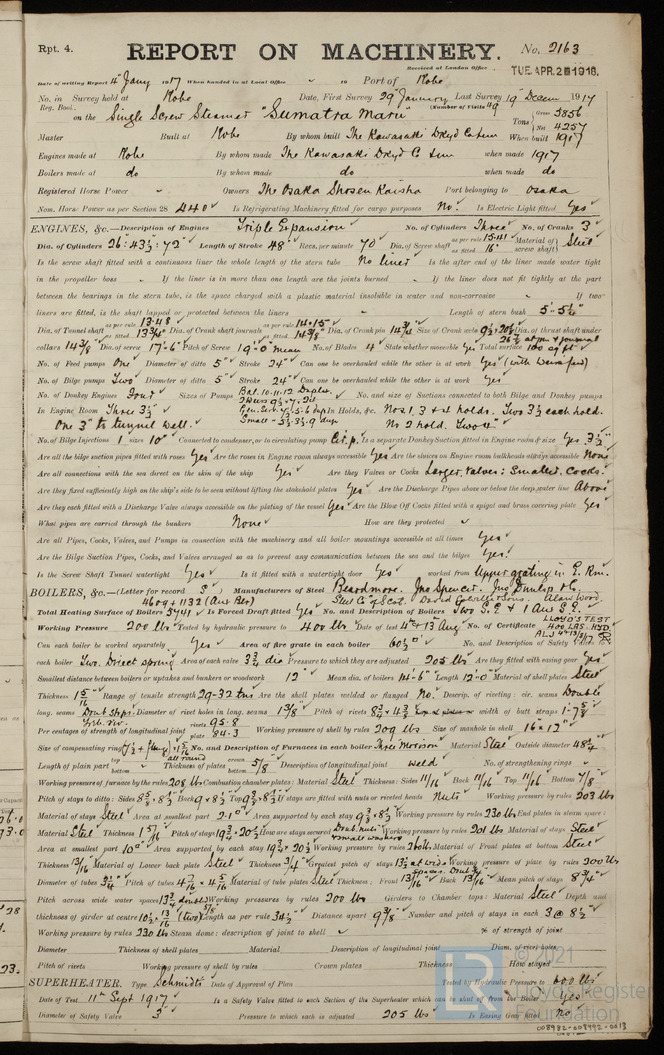 Rpt. 4.
REPORT ON MACHINERY.
No. 2163
Received at London Office
TUE. APR. 2 1918.
Date of writing Report 4th Jany 1917 When handed in at Local Office 10 Port of Kobe
No. in Survey held at Kobe Date, First Survey 29 January Last Survey 19 Decem 1917
Reg. Book. (Number of Visits 49
on the Single Screw Steamer "Sumatra Maru" Tons Gross 5856 Net 4257
Master Built at Kobe By whom built The Kawasaki Dkyd Co Lim When built 1917
Engines made at Kobe By whom made The Kawasaki Dkyd Co Lim when made 1917
Boilers made at do By whom made do when made do
Registered Horse Power Owners The Osaka Shosen Kaisha Port belonging to Osaka
Nom. Horse Power as per Section 28 440 Is Refrigerating Machinery fitted for cargo purposes No. Is Electric Light fitted Yes
ENGINES, &c.—Description of Engines Triple Expansion No. of Cylinders Three No. of Cranks 3
Dia. of Cylinders 26": 43½: 72" Length of Stroke 48" Revs. per minute 70 Dia. of Screw shaft as per rule 15.41 as fitted 16" Material of screw shaft Steel
Is the screw shaft fitted with a continuous liner the whole length of the stern tube No liner Is the after end of the liner made water tight
in the propeller boss If the liner is in more than one length are the joints burned If the liner does not fit tightly at the part
between the bearings in the stern tube, is the space charged with a plastic material insoluble in water and non-corrosive If two
liners are fitted, is the shaft lapped or protected between the liners Length of stern bush 5'-5½"
Dia. of Tunnel shaft as per rule 13.48 as fitted 13¾" Dia. of Crank shaft journals as per rule 14.15 as fitted 14⅜" Dia. of Crank pin 14¾" Size of Crank webs 9½ × 20½ Dia. of thrust shaft under
collars 14⅜" Dia. of screw 17'-6" Pitch of Screw 19'-0" mean No. of Blades 4 State whether moveable Yes Total surface 100 sq ft
No. of Feed pumps One Diameter of ditto 5" Stroke 24" Can one be overhauled while the other is at work Yes (with Weirs feed)
No. of Bilge pumps Two Diameter of ditto 5" Stroke 24" Can one be overhauled while the other is at work Yes
No. of Donkey Engines Four Sizes of Pumps Bal. 10.11.12 Duplex. No. and size of Suctions connected to both Bilge and Donkey pumps
In Engine Room Three 3½" In Holds, &c. Nos 1, 3 & 4 holds. Two 3½ each hold.
One 3" to tunnel well. No 2 hold. Two
No. of Bilge Injections 1 sizes 10" Connected to condenser, or to circulating pump Cir. p. Is a separate Donkey Suction fitted in Engine room & size Yes 3½"
Are all the bilge suction pipes fitted with roses Yes Are the roses in Engine room always accessible Yes Are the sluices on Engine room bulkheads always accessible None
Are all connections with the sea direct on the skin of the ship Yes Are they Valves or Cocks Larger, Valves; Smaller, Cocks.
Are they fixed sufficiently high on the ship's side to be seen without lifting the stokehold plates Yes Are the Discharge Pipes above or below the deep water line Above
Are they each fitted with a Discharge Valve always accessible on the plating of the vessel Yes Are the Blow Off Cocks fitted with a spigot and brass covering plate Yes
What pipes are carried through the bunkers None How are they protected
Are all Pipes, Cocks, Valves, and Pumps in connection with the machinery and all boiler mountings accessible at all times Yes
Are the Bilge Suction Pipes, Cocks, and Valves arranged so as to prevent any communication between the sea and the bilges Yes
Is the Screw Shaft Tunnel watertight Yes Is it fitted with a watertight door Yes worked from Upper grating in E. Rm.
BOILERS, &c.—(Letter for record S) Manufacturers of Steel Beardmore. Jno Spencer. Jno Dunlop & Co
4609 + 1132 (Aux Blr) Steel Co of Scot.
Total Heating Surface of Boilers 5741 Is Forced Draft fitted Yes No. and Description of Boilers Two S.E. & 1 Aux S.E.
Working Pressure 200 lbs Tested by hydraulic pressure to 400 lbs Date of test 4th & 13 Aug No. of Certificate LLOYD'S TEST 400 LBS. HYD
Can each boiler be worked separately Yes Area of fire grate in each boiler 60½ No. and Description of Safety Valves to
each boiler Two. Direct spring Area of each valve 3¾ dia Pressure to which they are adjusted 205 lbs Are they fitted with easing gear Yes
Smallest distance between boilers or uptakes and bunkers or woodwork 12" Mean dia. of boilers 14'-6" Length 12'-0" Material of shell plates Steel
Thickness 15/16 Range of tensile strength 29-32 tns Are the shell plates welded or flanged No. Descrip. of riveting: cir. seams Double
long. seams Doub straps. Diameter of rivet holes in long. seams 1⅜ Pitch of rivets 8¾ × 4⅜ width of butt straps 1'-7⅝
Per centages of strength of longitudinal joint rivets 95.8 plate 84.3 Working pressure of shell by rules 209 lbs Size of manhole in shell 16 × 12"
Size of compensating ring No. and Description of Furnaces in each boiler Three Morison Material Steel Outside diameter 48¾
Length of plain part top bottom Thickness of plates crown bottom 5/8 Description of longitudinal joint weld No. of strengthening rings
Working pressure of furnace by the rules 208 lbs Combustion chamber plates: Material Steel Thickness: Sides 11/16 Back 11/16 Top 11/16 Bottom 7/8
Pitch of stays to ditto: Sides Back 9 × 8½ Top If stays are fitted with nuts or riveted heads Nuts Working pressure by rules 203 lbs
Material of stays Steel Area at smallest part 2.1 Area supported by each stay 9⅜ × 8½ Working pressure by rules 230 lbs End plates in steam space:
Material Steel Thickness Pitch of stays How are stays secured Doub. nuts Working pressure by rules 201 lbs Material of stays Steel
Area at smallest part 10 Area supported by each stay Working pressure by rules 260 lbs Material of Front plates at bottom Steel
Thickness 13/16 Material of Lower back plate Steel Thickness ¾ Greatest pitch of stays 13½ at wide spaces Working pressure of plate by rules 200 lbs
Diameter of tubes 3¼ Pitch of tubes Material of tube plates Steel Thickness: Front 13/16 Back 13/16 Mean pitch of stays 8¾
Pitch across wide water spaces Working pressures by rules 200 lbs Girders to Chamber tops: Material Steel Depth and
thickness of girder at centre 10½ × 13/16 (two) Length as per rule 34½ Distance apart 9⅜ Number and pitch of stays in each 3 @ 8½
Working pressure by rules 230 lbs Steam dome: description of joint to shell % of strength of joint
Diameter Thickness of shell plates Material Description of longitudinal joint Diam. of rivet holes
Pitch of rivets Working pressure of shell by rules Crown plates Thickness How stayed
SUPERHEATER. Type Schmidts Date of Approval of Plan Tested by Hydraulic Pressure to 600 lbs
Date of Test 11th Sept. 1917 Is a Safety Valve fitted to each Section of the Superheater which can be shut off from the Boiler Yes
Diameter of Safety Valve 3" Pressure to which each is adjusted 205 lbs Is Easing Gear fitted No
© 2021
Lloyd's Register
Foundation
008982-008992-0013